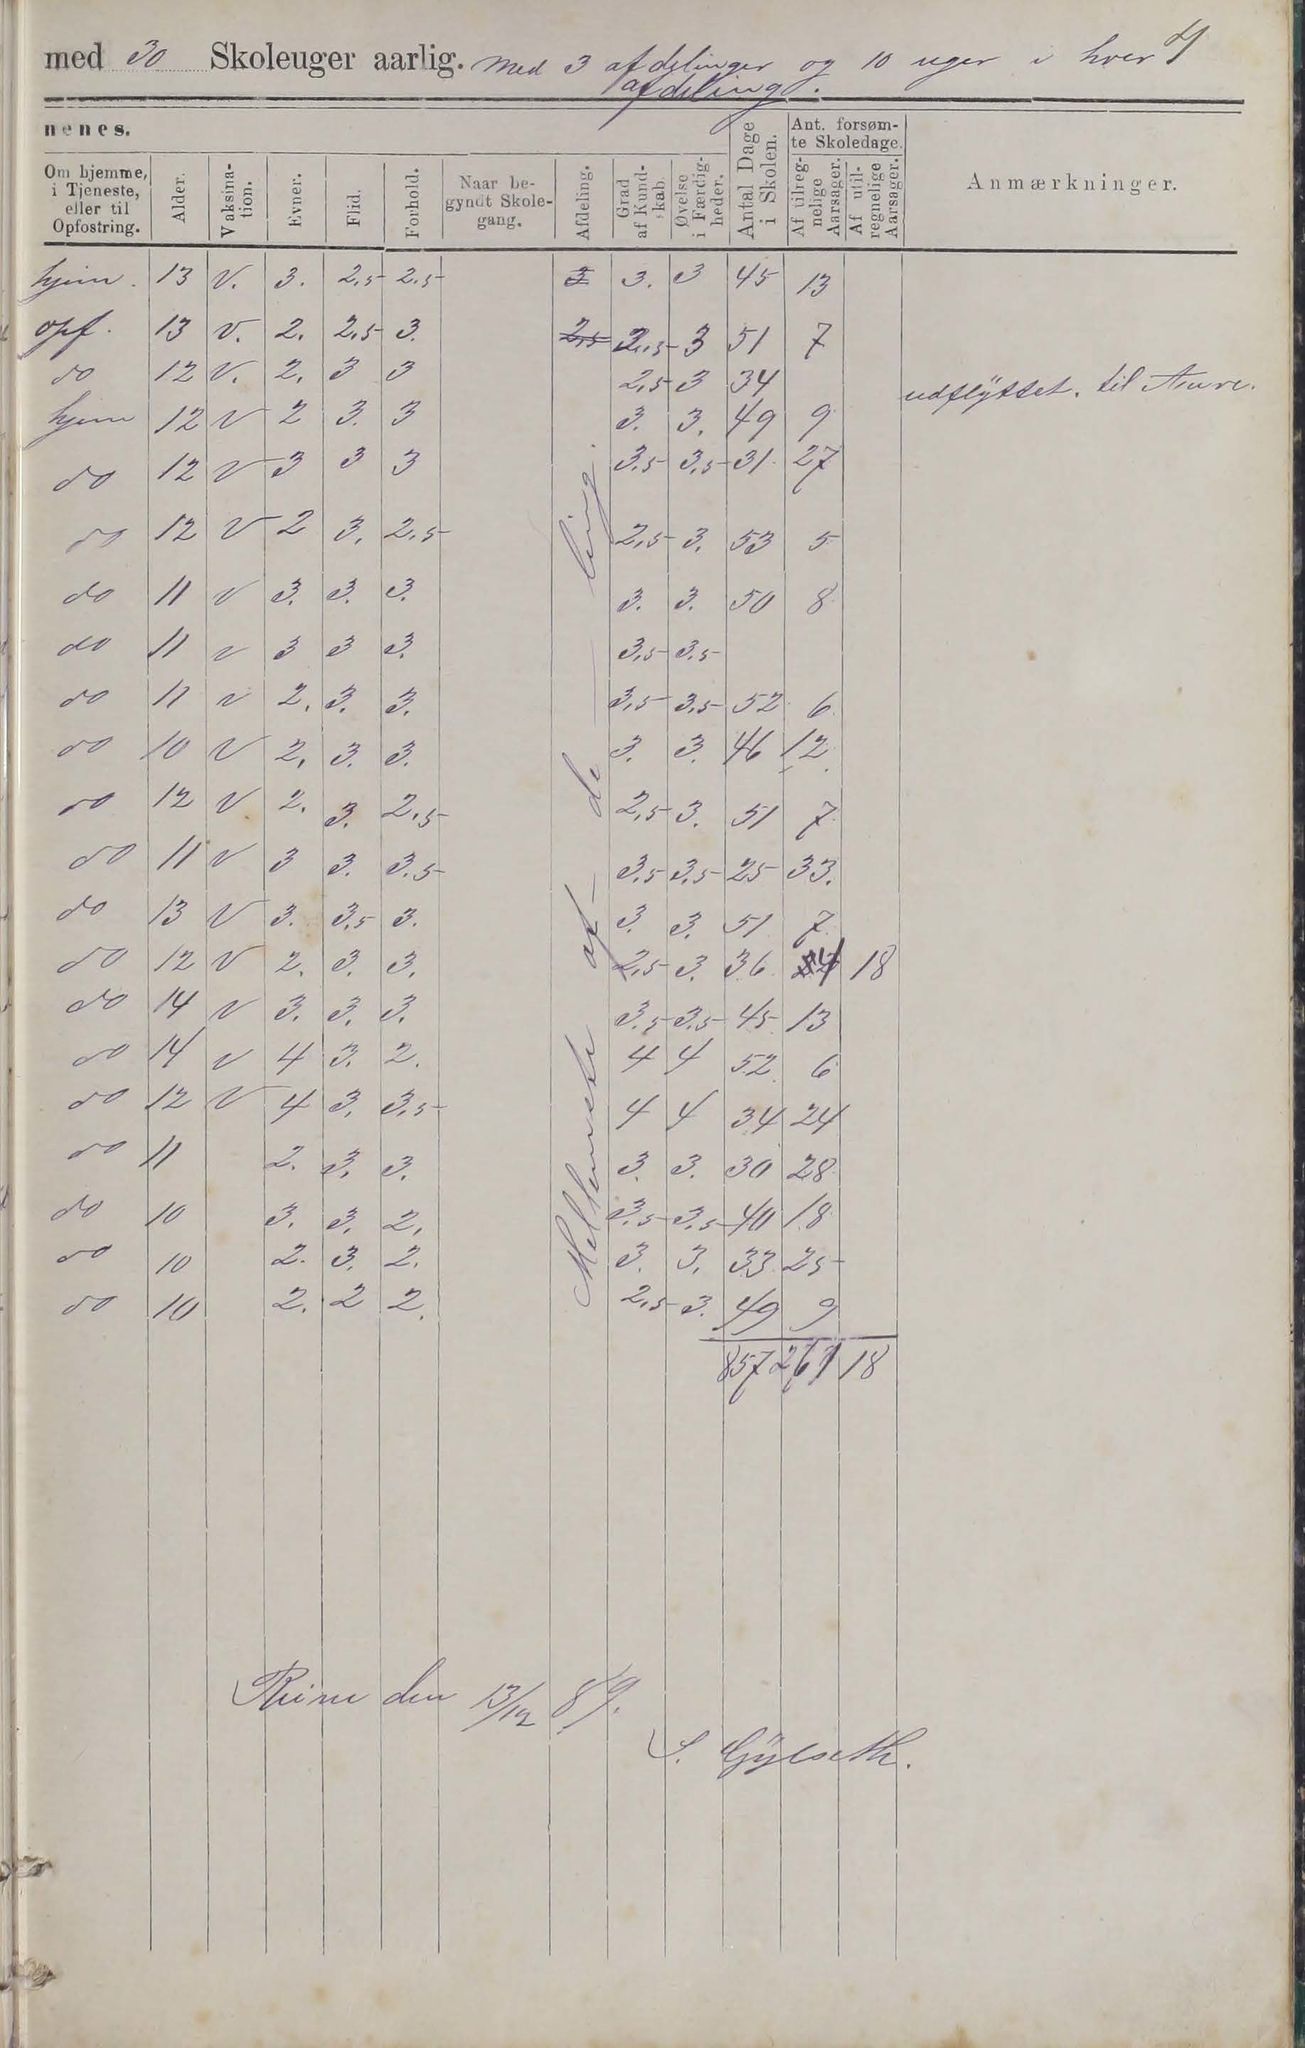 med 30 Skoleuger aarlig. Med 3 afdelinger og 10 uger i hver 4
afdeling.
nenes.
Om hjemme, i Tjeneste, eller til Opfostring. Alder. Vaksination. Evner. Flid. Forhold. Naar begyndt Skolegang. Afdeling. Grad af Kundskab. Øvelse i Færdigheder. Antal Dage i Skolen. Ant. forsømte Skoledage. Af tilregnelige Aarsager. Af utilregnelige Aarsager. Anmærkninger.
hjem. 13 V. 3. 2,5 2,5 3 3. 3 45 13
opf. 13 V. 2. 2,5 3. 2,5 2,5 3 51 7
do 12 V. 2. 3 3 2,5 3 34 udflyttet. til Aure.
hjem 12 V 2 3. 3 3. 3. 49 9
do 12 V 3 3 3 3.5 3,5 31. 27
do 12 V 2 3. 2,5 2,5 3. 53 5
do 11 V 3. 3. 3. 3. 3. 50 8
do 11 V 3 3 3. 3,5 3.5
do 11 V 2. 3. 3. 3,5 3,5 52 6
do 10 V 2. 3. 3. 3. 3. 46 12
do 12 V 2. 3. 2,5 2,5 3. 51 7
do 11 V 3 3. 3.5 3,5 3,5 25 33.
do 13 V 3. 3,5 3. 3. 3. 51 7
do 12 V 2. 3. 3. 2,5 3. 36 4 18
do 14 V 3. 3. 3. 3.5 3.5 45 13
do 14 V 4 3. 2. 4 4 52 6
do 12 V 4 3. 3,5 4 4 34 24
do 11 2. 3. 3. 3. 3. 30 28
do 10 3. 3. 2. 3.5 3.5 40 18
do 10 2. 3. 2. 3. 3. 33 25
do 10 2. 2 2. 2,5 3. 49 9
Mellemste af-de-ling.
857 261 18
Reine den 13/12 89.
S. Gylseth.